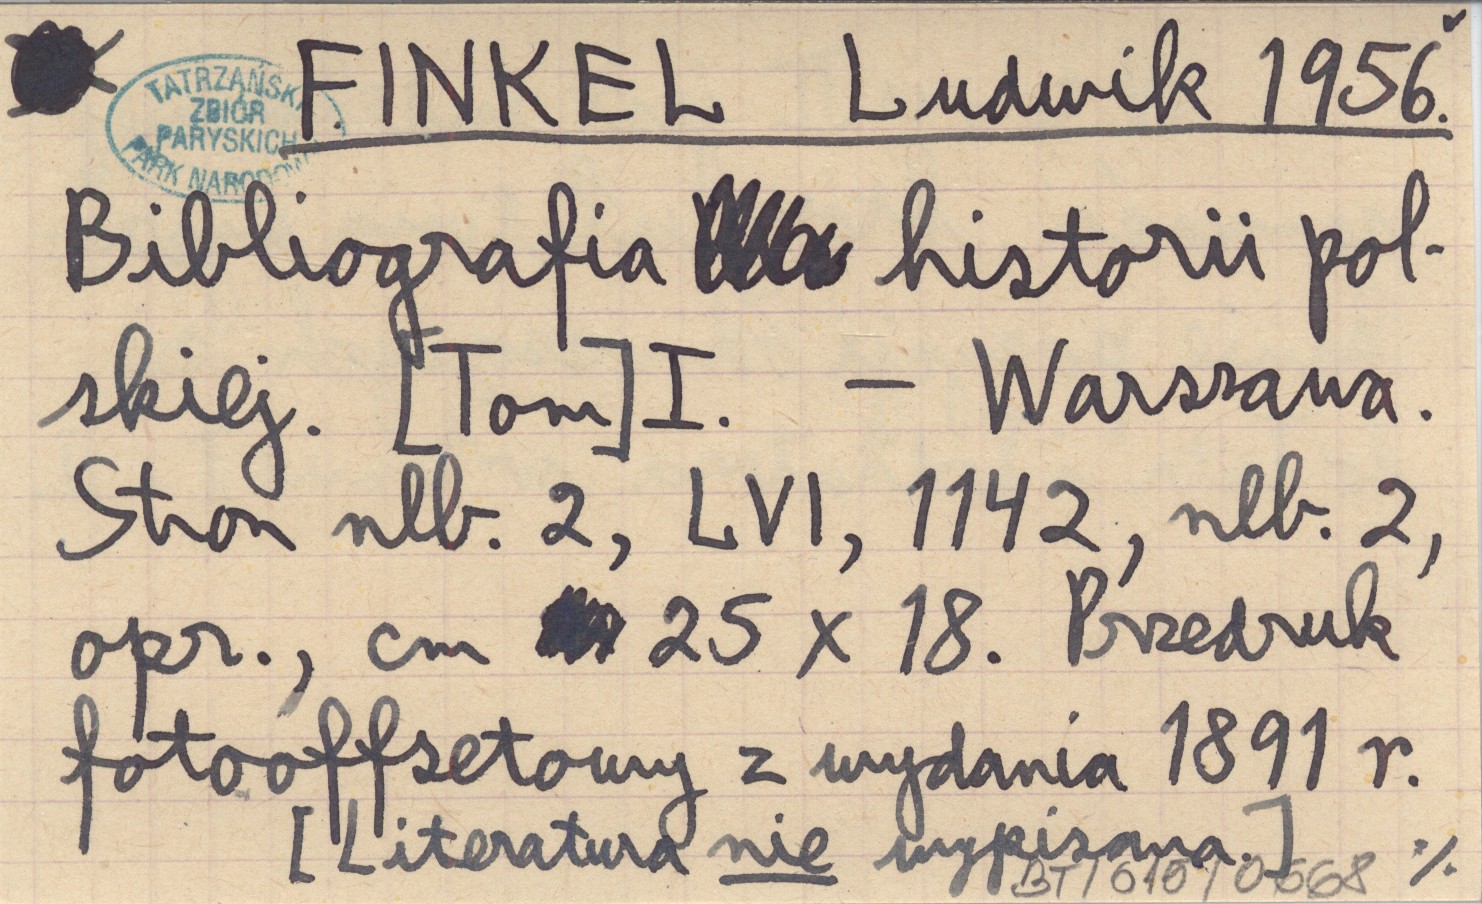 FINKEL Ludwik 1956.
TATRZAŃSKI
ZBIÓR
PARYSKICH
PARK NARODOWY
Bibliografia historii pol-
skiej. [Tom] I. — Warszawa.
Stron nlb. 2, LVI, 1142, nlb. 2,
opr., cm 25 x 18. Przedruk
fotooffsetowy z wydania 1891 r.
[Literatura nie wypisana.] %